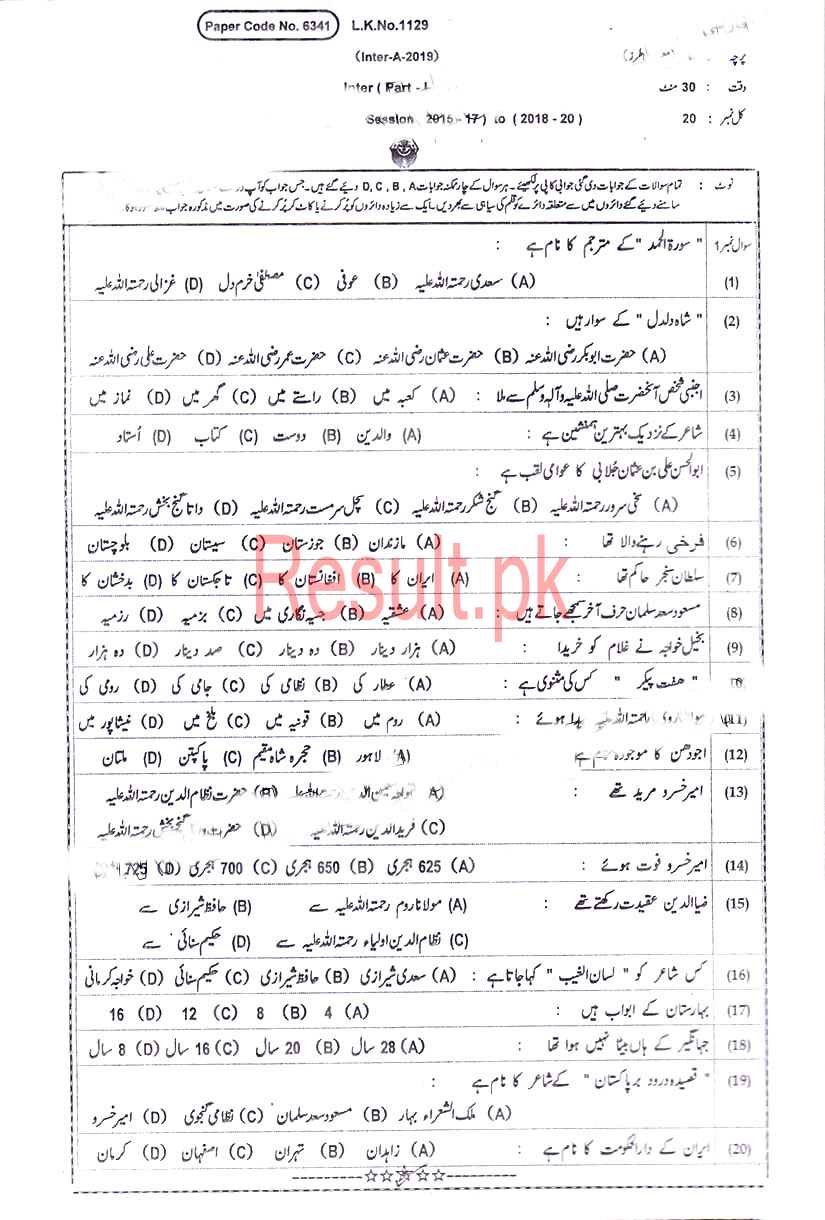 Paper Code No. 6341 L.K.No.1129
(Inter-A-2019)
پرچہ
Inter ( Part - I
وقت : 30 منٹ
Session 2015 - 17 ) to ( 2018 - 20 )
کل نمبر : 20
نوٹ : تمام سوالات کے جوابات دی گئی جوابی کاپی پر لکھیئے ۔ ہر سوال کے چار ممکنہ جوابات D, C , B , A دیئے گئے ہیں ۔ جس جواب کو آپ
سامنے دیئے گئے دائروں میں سے متعلقہ دائرے کو قلم کی سیاہی سے بھر دیں ۔ ایک سے زیادہ دائروں کو پُر کرنے یا کاٹ کر پُر کرنے کی صورت میں مذکورہ جواب
سوال نمبر 1 " سورۃ الحمد " کے مترجم کا نام ہے :
(1) (A) سعدی رحمتہ اللہ علیہ (B) عوفی (C) مصطفیٰ خرم دل (D) غزالی رحمتہ اللہ علیہ
(2) " شاہ دلدل " کے سوار ہیں :
(A) حضرت ابوبکر رضی اللہ عنہ (B) حضرت عثمان رضی اللہ عنہ (C) حضرت عمر رضی اللہ عنہ (D) حضرت علی رضی اللہ عنہ
(3) اجنبی شخص آنحضرت صلی اللہ علیہ وآلہ وسلم سے ملا : (A) کعبہ میں (B) راستے میں (C) گھر میں (D) نماز میں
(4) شاعر کے نزدیک بہترین ہمنشین ہے : (A) والدین (B) دوست (C) کتاب (D) اُستاد
(5) ابوالحسن علی بن عثمان جُلابی کا عوامی لقب ہے :
(A) سخی سرور رحمتہ اللہ علیہ (B) گنج شکر رحمتہ اللہ علیہ (C) سچل سرمست رحمتہ اللہ علیہ (D) داتا گنج بخش رحمتہ اللہ علیہ
(6) فرخی رہنے والا تھا : (A) مازندان (B) جوزستان (C) سیستان (D) بلوچستان
(7) سلطان سنجر حاکم تھا : (A) ایران کا (B) افغانستان کا (C) تاجکستان کا (D) بدخشان کا
(8) مسعود سعد سلمان حرف آخر سمجھے جاتے ہیں : (A) عشقیہ (B) حبسیہ نگاری میں (C) بزمیہ (D) رزمیہ
(9) بخیل خواجہ نے غلام کو خریدا : (A) ہزار دینار (B) دہ دینار (C) صد دینار (D) دہ ہزار
" ھفت پیکر " کس کی مثنوی ہے : (A) عطار کی (B) نظامی کی (C) جامی کی (D) رومی کی
(11) رحمتہ اللہ علیہ پیدا ہوئے : (A) روم میں (B) قونیہ میں (C) بلخ میں (D) نیشاپور میں
(12) اجودھن کا موجودہ نام ہے (A) لاہور (B) حجرہ شاہ مقیم (C) پاکپتن (D) ملتان
(13) امیر خسرو مرید تھے : (A) (B) حضرت نظام الدین رحمتہ اللہ علیہ
(C) فرید الدین رحمتہ اللہ علیہ (D) بخش رحمتہ اللہ علیہ
(14) امیر خسرو فوت ہوئے : (A) 625 ہجری (B) 650 ہجری (C) 700 ہجری (D) 725
(15) ضیا الدین عقیدت رکھتے تھے : (A) مولانا روم رحمتہ اللہ علیہ سے (B) حافظ شیرازی سے
(C) نظام الدین اولیاء رحمتہ اللہ علیہ سے (D) حکیم سنائی سے
(16) کس شاعر کو " لسان الغیب " کہا جاتا ہے : (A) سعدی شیرازی (B) حافظ شیرازی (C) حکیم سنائی (D) خواجہ کرمانی
(17) بہارستان کے ابواب ہیں : (A) 4 (B) 8 (C) 12 (D) 16
(18) جہانگیر کے ہاں بیٹا نہیں ہوا تھا : (A) 28 سال (B) 20 سال (C) 16 سال (D) 8 سال
(19) " قصیدہ درود بر پاکستان " کے شاعر کا نام ہے :
(A) ملک الشعراء بہار (B) مسعود سعد سلمان (C) نظامی گنجوی (D) امیر خسرو
(20) ایران کے دارالحکومت کا نام ہے : (A) زاہدان (B) تہران (C) اصفہان (D) کرمان
Result.pk